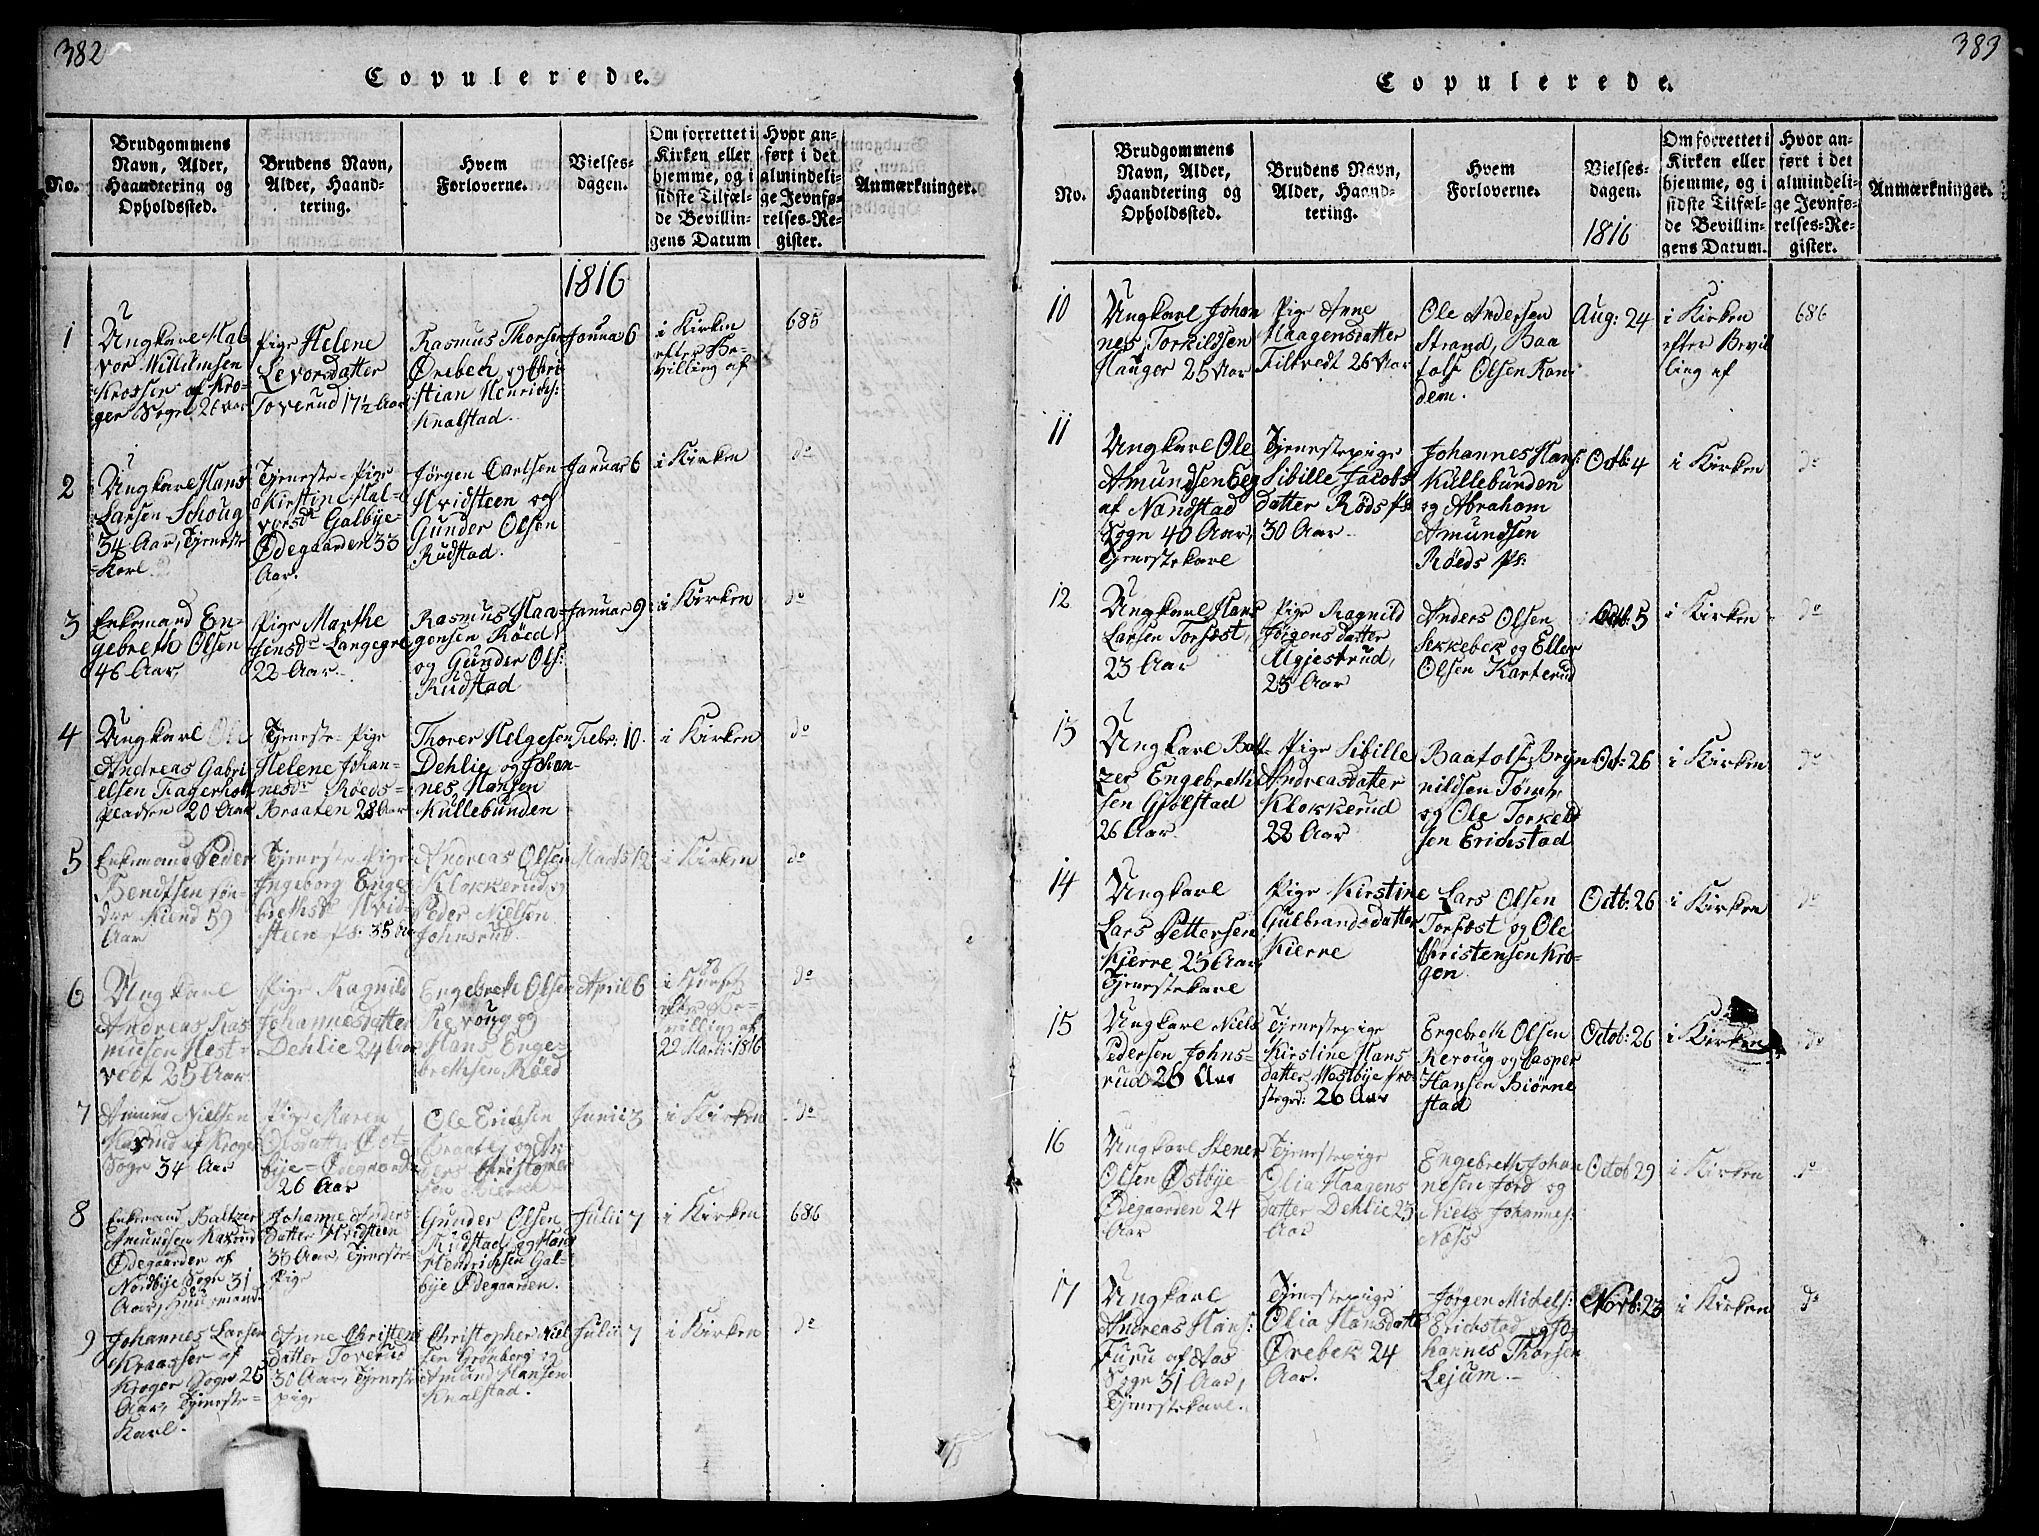 382
Copulerede.
No.
Brudgommens
Navn, Alder,
Haandtering og
Opholdssted.
Brudens Navn,
Alder, Haand-
tering.
Hvem
Forloverne.
Vielses-
dagen.
Om forrettet i
Kirken eller
hjemme, og i
sidste Tilfæl-
de Bevillin-
gens Datum
Hvor an-
ført i det
almindeli-
ge Jevnfø-
relses-Re-
gister.
Anmærkninger.
1816
1
Ungkarl Hal
vor Willumsen
Krosser af Kro-
ger Sogn 26 Aar
Pige Helene
Levorsdatter
Toverud 17½ Aar
Rasmus Thorsen
Ørebech og Chri
stian Henrichs:
Knalstad.
Janua 6
i Kirken
efter Be-
villing af
685
2
Ungkarl Hans
Larsen Schoug
34 Aar, Tjeneste
Karl
Tjeneste-Pige
Kirstine Hal-
vorsd Galbye-
Ødegaarden 33
Aar.
Jörgen Carlsen
Hvidsteen og
Gunder Olsen
Rudstad.
Januar 6
i Kirken
do
3
Enkemand En-
gebreth Olsen
46 Aar,
Pige Marthe
Jensdr Langegre
22 Aar.
Rasmus Haa-
gensen Röed
og Gunder Ols:
Rudstad
Januar 9
i Kirken
do
4
Ungkarl Ole
Andreas Gabri
elsen Fagerholt
pladsen 20 Aar
Tjeneste-Pige
Helene Johan-
nesdr Röeds-
Braaten 28 Aar
Thorer Helgesen
Dehlie og Johan-
nes Hansen
Kullebunden
Febr: 10
i Kirken
do
5
Enkemand Peder
Bendtsen Søn-
dre Kiend 59
Aar
Tjeneste-Pige
Ingeborg Enge-
brethsdr Hvid-
steen ps: 35 Aar
Andreas Olsen
Klokkerud og
Peder Nielsen
Johnsrud
Marts 12
i Kirken
do
6
Ungkarl
Andreas Ras
musen Hest-
vedt 25 Aar
Pige Ragnild
Johannesdatter
Dehlie 24 Aar
Engebreth Olsen
Revoug og
Hans Enge-
brethsen Röed
April 6
i Huuset
efter Be-
villing af
22 Marti: 1816
do
7
Amund Nielsen
Haxrud af Kroger
Sogn 34 Aar
Pige Maren
Olsdatter Øst-
bye-Ødegaarde
26 Aar
Ole Erichsen
Braate og An-
ders Christopher
sen
Junii 3
i Kirken
do
8
Enkemand Baltzer
Amundsen Haxrud
Ødegaarden af
Nordbye Sogn 31
Aar, Huusmand
Johanne Anders
datter Hvidsteen
33 Aar, Tjeneste-
Pige
Gunder Olsen
Rudstad og Hans
Hendrichsen Gal-
bye Ødegaarden.
Julii 7
i Kirken
686
9
Johannes Larsen
Kraagser af
Kroger Sogn 25
Aar, Tjeneste-
Karl.
Anne Christens
datter Toverud
30 Aar, Tjeneste
pige
Christopher Niel
sen Grönberg og
Amund Hansen
Knalstad.
Julii 7
i Kirken
do
383
Copulerede.
No.
Brudgommens
Navn, Alder,
Haandtering og
Opholdssted.
Brudens Navn,
Alder, Haand-
tering.
Hvem
Forloverne.
Vielses-
dagen.
1816
Om forrettet i
Kirken eller
hjemme, og i
sidste Tilfæl-
de Bevillin-
gens Datum.
Hvor an-
ført i det
almindeli-
ge Jevnfø-
relses-Re-
gister.
Anmærkninger.
10
Ungkarl Johan
nes Torkildsen
Hauger 25 Aar
Pige Anne
Haagensdatter
Filtvedt 26 Aar
Ole Andersen
Strand, Baa
tolf Olsen Ran
dem.
Aug: 24
i Kirken
efter Bevil
ling af
686
11
Ungkarl Ole
Amundsen Eeg
af Nandstad
Sogn 40 Aar,
Tjenestekarl
Tjenestepige
Sibille Jacobs
datter Röds ps
30 Aar
Johannes Hans:
Kullebunden
og Abraham
Amundsen
Röeds ps:
Octb: 4
i Kirken
do
12
Ungkarl Hans
Larsen Torfæst,
23 Aar
Pige Ragnild
Jörgensdatter
Mgjestrud,
25 Aar
Anders Olsen
Sekkebek og Eller
Olsen Karterud
Octb: 5
i Kirken
do
13
Ungkarl Balt
zer Engebreth
sen Gjölstad
26 Aar
Pige Sibille
Andreasdatter
Klokkerud
28 Aar
Baatolf Bryn
nildsen Tömt,
og Ole Torkeld
sen Erichstad
Oct: 26
i Kirken
do
14
Ungkarl
Lars Pettersen
Kjerre 25 Aar
Tjenestekarl
Pige Kirstine
Gulbrandsdatter
Kierre
Lars Olsen
Torfæst og Ole
Christensen Kro-
gen
Octb: 26
i Kirken
do
15
Ungkarl Niels
Pedersen Johns-
rud 26 Aar
Tjenestepige
Kirstine Hans
datter Vestbye Præ
stegrd: 26 Aar
Engebreth Olsen
Revoug og Casper
Hansen Biörne
stad
Octob: 26
i Kirken
do
16
Ungkarl Stener
Olsen Østbye-
Ødegaarden 24
Aar
Tjenestepige
Olia Haagens
datter Dehlie 23
Aar
Engebreth Johan
nesen Jord og
Niels Johannes:
Næss
Octob 29
i Kirken
do
17
Ungkarl
Andreas Hans:
Furu af Aas
Sogn 31 Aar,
Tjenestekarl.
Tjenestepige
Olia Hansdatter
Ørebek 24
Aar.
Jörgen Michels:
Erichstad og Jo
hannes Thorsen
Lejum.
Novb: 23
i Kirken
do